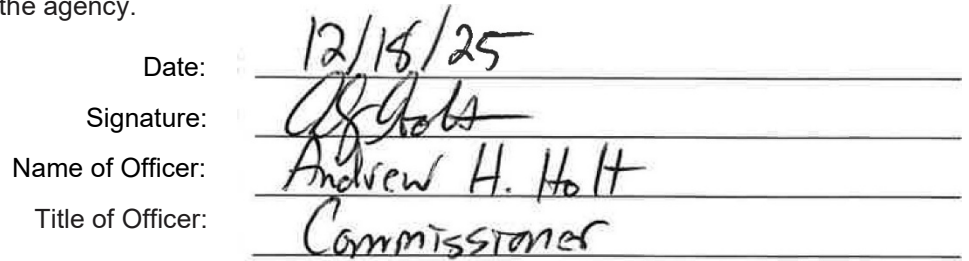 the agency.
Date: 12/18/25
Signature:
Name of Officer: Andrew H. Holt
Title of Officer: Commissioner